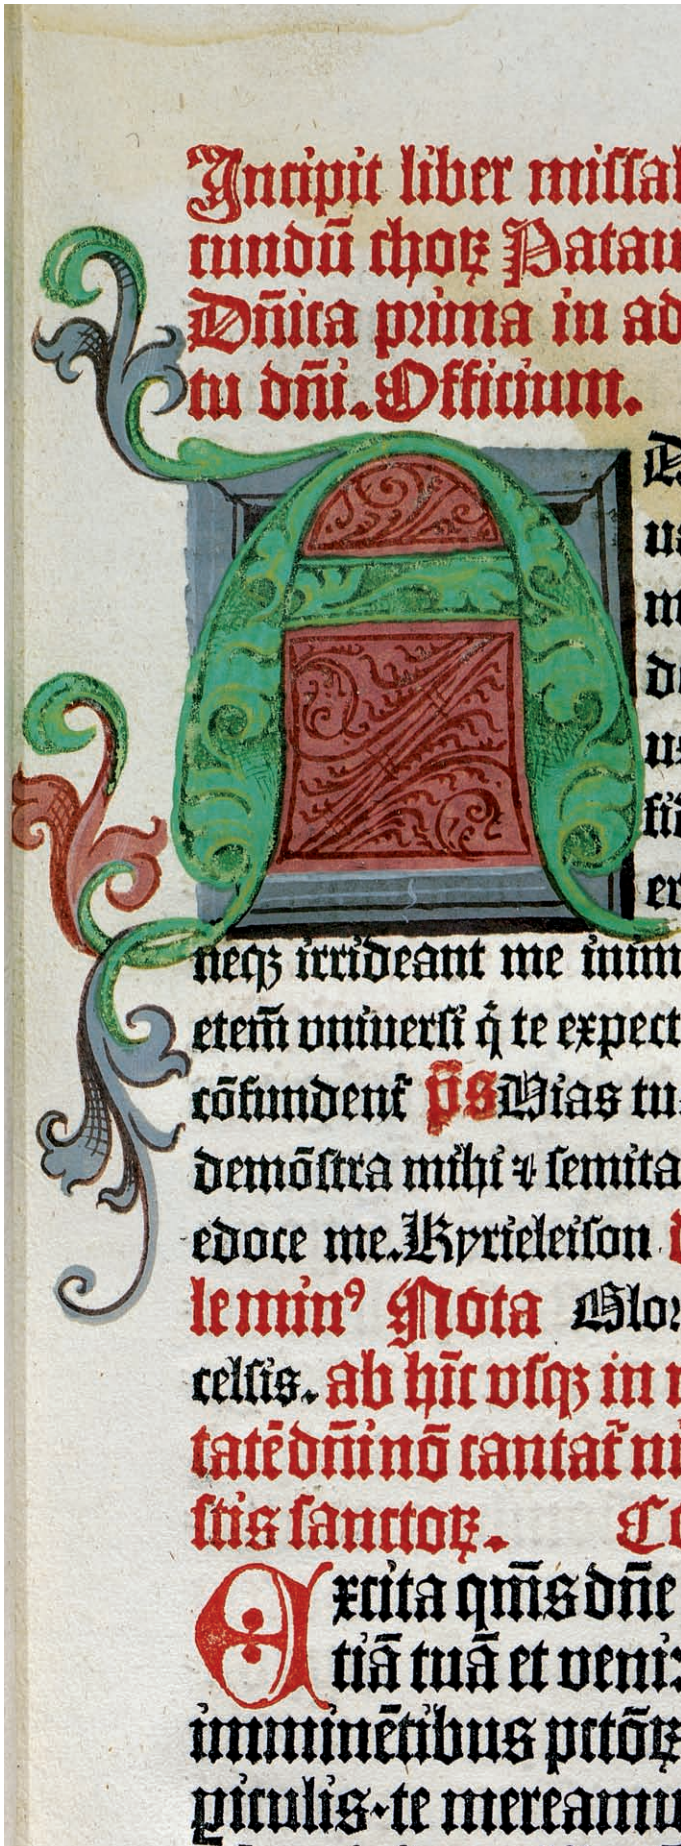 Incipit liber missal
cundū choꝝ Patau
Dn̄ica prima in ad
tu dn̄i. Officium.
A
ua
m
de
us
fūi
er
neqꝫ irrideant me inim
etem̄ vniuersi q̇ te expect
cōfundent᷑ p̄s Vias tu
demōstra mihi ⁊ semita
edoce me. Kyrieleison
lemin⁹ Nota Glor
celsis. ab hīc vsqꝫ in
tatē dn̄i nō cantat᷑ ni
stis sanctoꝝ. Co
Excita qm̄s dn̄e
tiā tuā et veni:
imminētibus pctōꝝ
piculis. te mereamu